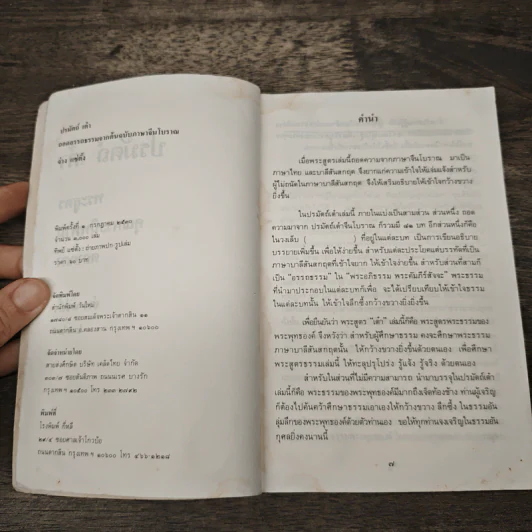 ปรมัตถ์ เต๋า
ถอดอรรถธรรมจากต้นฉบับภาษาจีนโบราณ
จ่าง แซ่ตั้ง
พิมพ์ครั้งที่ ๑ กรกฎาคม
จำนวน ๑,๐๐๐ เล่ม
ทิพย์ แซ่ตั้ง : ถ่ายภาพปก รูปเล่ม
ราคา บาท
จัดพิมพ์โดย
สำนักพิมพ์
ซอยสมเด็จพระเจ้าตากสิน ๑๑
ถนนตากสิน อ.คลองสาน กรุงเทพฯ ๑๐๖๐๐
จัดจำหน่ายโดย
สายส่งศึกษิต บริษัท เคล็ดไทย จำกัด
ซอยสันติภาพ ถนนนเรศ บางรัก
กรุงเทพฯ ๑๐๕๐๐ โทร
พิมพ์ที่
โรงพิมพ์
ซอยศาลเจ้าโภวบ้อ
ถนนตากสิน กรุงเทพฯ ๑๐๖๐๐ โทร
คำนำ
เมื่อพระสูตรเล่มนี้ถอดความจากภาษาจีนโบราณ มาเป็น
ภาษาไทย และบาลีสันสกฤต จึงยากแก่ความเข้าใจให้แจ่มแจ้งสำหรับ
ผู้ไม่ถนัดในภาษาบาลีสันสกฤต จึงให้เสริมอธิบายให้เข้าใจกว้างขวาง
ยิ่งขึ้น
ในปรมัตถ์เต๋าเล่มนี้ ภายในแบ่งเป็นสามส่วน ส่วนหนึ่ง ถอด
ความมาจาก ปรมัตถ์เต๋าจีนโบราณ ก็รวมมี ๘๑ บท อีกส่วนหนึ่งก็คือ
ในวงเล็บ ( ) ที่อยู่ในแต่ละบท เป็นการเขียนอธิบาย
บรรยายเพิ่มขึ้น เพื่อให้ง่ายขึ้น สำหรับแต่ละประโยคแต่บรรทัดที่เป็น
ภาษาบาลีสันสกฤตที่เข้าใจยาก ให้เข้าใจง่ายขึ้น สำหรับส่วนที่สามก็
เป็น “อรรถธรรม” ใน “พระอภิธรรม พระคัมภีร์สัจจะ” พระธรรม
ที่นำมาประกอบในแต่ละบทก็เพื่อ จะได้เปรียบเทียบให้เข้าใจธรรม
ในแต่ละบทนั้น ให้เข้าใจลึกซึ้งกว้างขวางยิ่งขึ้น
เพื่อยืนยันว่า พระสูตร “เต๋า” เล่มนี้ก็คือ พระสูตรพระธรรมของ
พระพุทธองค์ จึงหวังว่า สำหรับผู้ศึกษาธรรม คงจะศึกษาพระธรรม
ภาษาบาลีสันสกฤตนั้น ให้กว้างขวางยิ่งขึ้นด้วยตนเอง เพื่อศึกษา
พระสูตรธรรมเล่มนี้ ให้ทะลุปรุโปร่ง รู้แจ้ง รู้จริง ด้วยตนเอง
สำหรับในส่วนที่ไม่มีความสามารถ นำมาบรรจุในปรมัตถ์เต๋า
เล่มนี้ก็คือ พระธรรม ของพระพุทธองค์มีมากถึงเจ็ดห้องช้าง ท่านผู้เจริญ
ก็ต้องไปค้นคว้าศึกษาธรรมเอาเองให้กว้างขวาง ลึกซึ้ง ในธรรมอัน
ลุ่มลึกของพระพุทธองค์ด้วยตัวท่านเอง ขอให้ทุกท่านจงเจริญในธรรมอัน
กุศลยิ่งคงนานนี้
๗